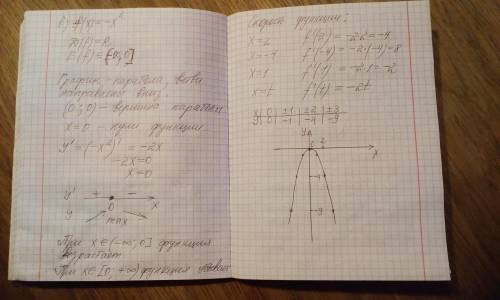 в) f(x)=-x²
D(f)=R
E(f)=
График - парабола, ветви
направлены вниз.
(0;0) - вершина параболы
x=0 - нули функции
y'=(-x²)'=-2x
-2x=0
x=0
y' + -
0 x
y max
При x∈(-∞;0] функция
возрастает
При x∈[0;+∞) функция
Скорость функции:
x=2 f'(2)=-2·2=-4
x=-4 f'(-4)=-2·(-4)=8
x=1 f'(1)=-2·1=-2
x=t f'(t)=-2t
x 0 ±1 ±2 ±3
y 0 -1 -4 -9
y
x
-9